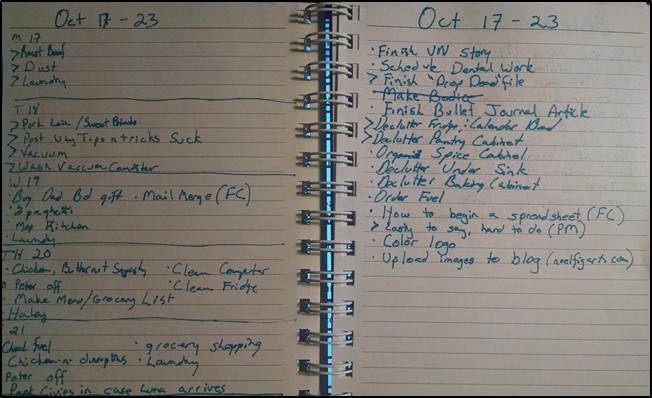 Oct 17 - 23
M 17
> Roast Beef
> Dust
> Laundry
T 18
> Pork Loin / Sweet Potato
> Post Why Tips n tricks Suck
> Vacuum
> Wash Vaccum Canister
W 19
· Buy Dad Bd gift · Mail Merge (FC)
· Spaghetti
· Mop Kitchen
· Laundry
TH 20
· Chicken, Butternut Squash · Clean Computer
Peter off · Clean Fridge
· Make Menu/Grocery List
Haley
21
Check Fuel · grocery shopping
Chicken n dumplins · Laundry
Peter off
Pack Civies in case Luna arrives
Oct 17 - 23
· Finish VN Story
· Schedule Dental Work
> Finish "Drop Dead" file
· Make Bodice
· Finish Bullet Journal Article
> Declutter Fridge: Calendar Board
> Declutter Pantry Cabinet
· Organize Spice Cabinet
· Declutter Under Sink
· Declutter Baking Cabinet
· Order Fuel
· How to begin a spreadsheet (FC)
> Easy to say, hard to do (PM)
· Color logo
· Upload images to blog (noelfigart.com)